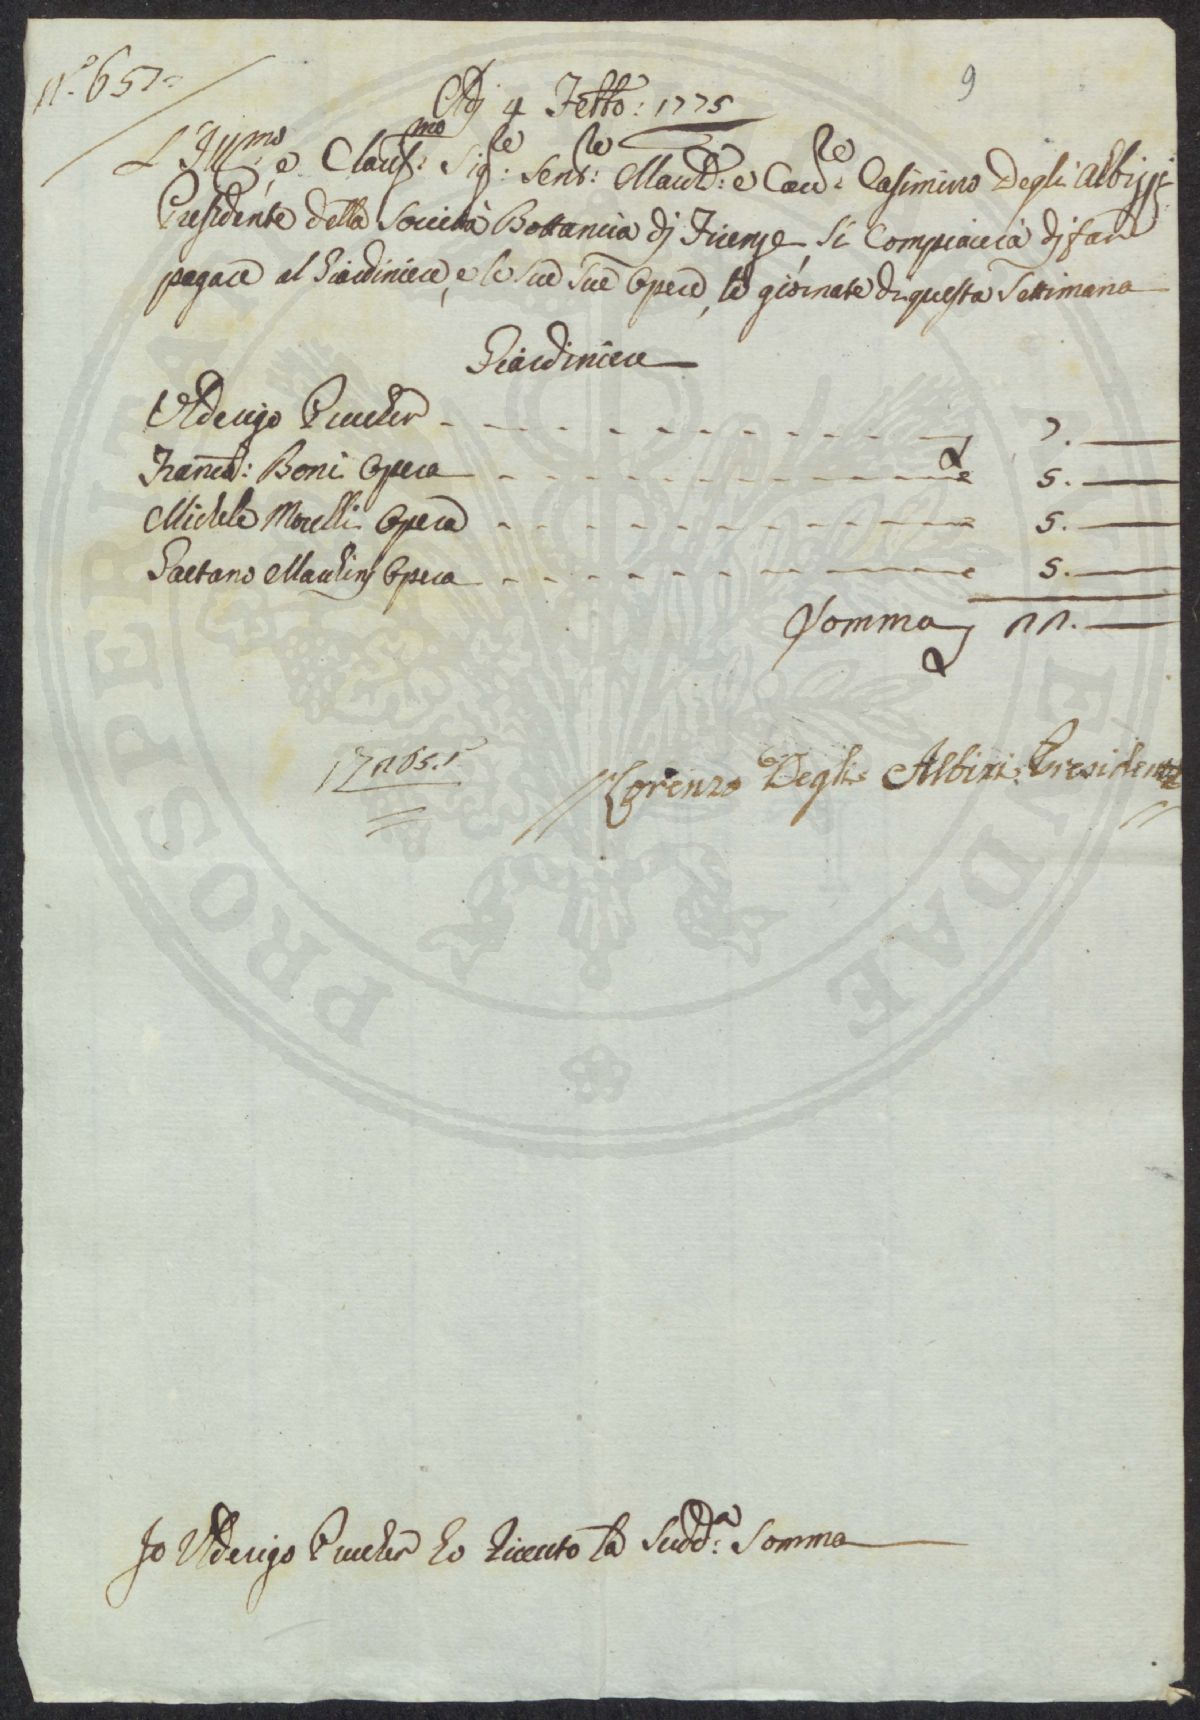 N.° 657
9
Adj 4 Febb.º: 1775
L'Ill.mo, e Claris.mo Sig.re Sen.re March.e e Cav.re Casimirro Degli Albizzj
Presidente della Società Bottanica dj Firenze, Si Compiacerà dj far
pagare al Giardiniere, e le Sue Sue Opere, le giornate di questa Settimana
Giardiniere
Ulderigo Prucher 7.
Franco: Boni Opera 5.
Michele Morelli Opera 5.
Gaetano Martinj Opera 5.
Somma 22.
Lorenzo Degli Albizi Presidente
PROSPERITATI AUGENDAE
Io Ulderigo Prucher ho riceuto la Sudd.a Somma